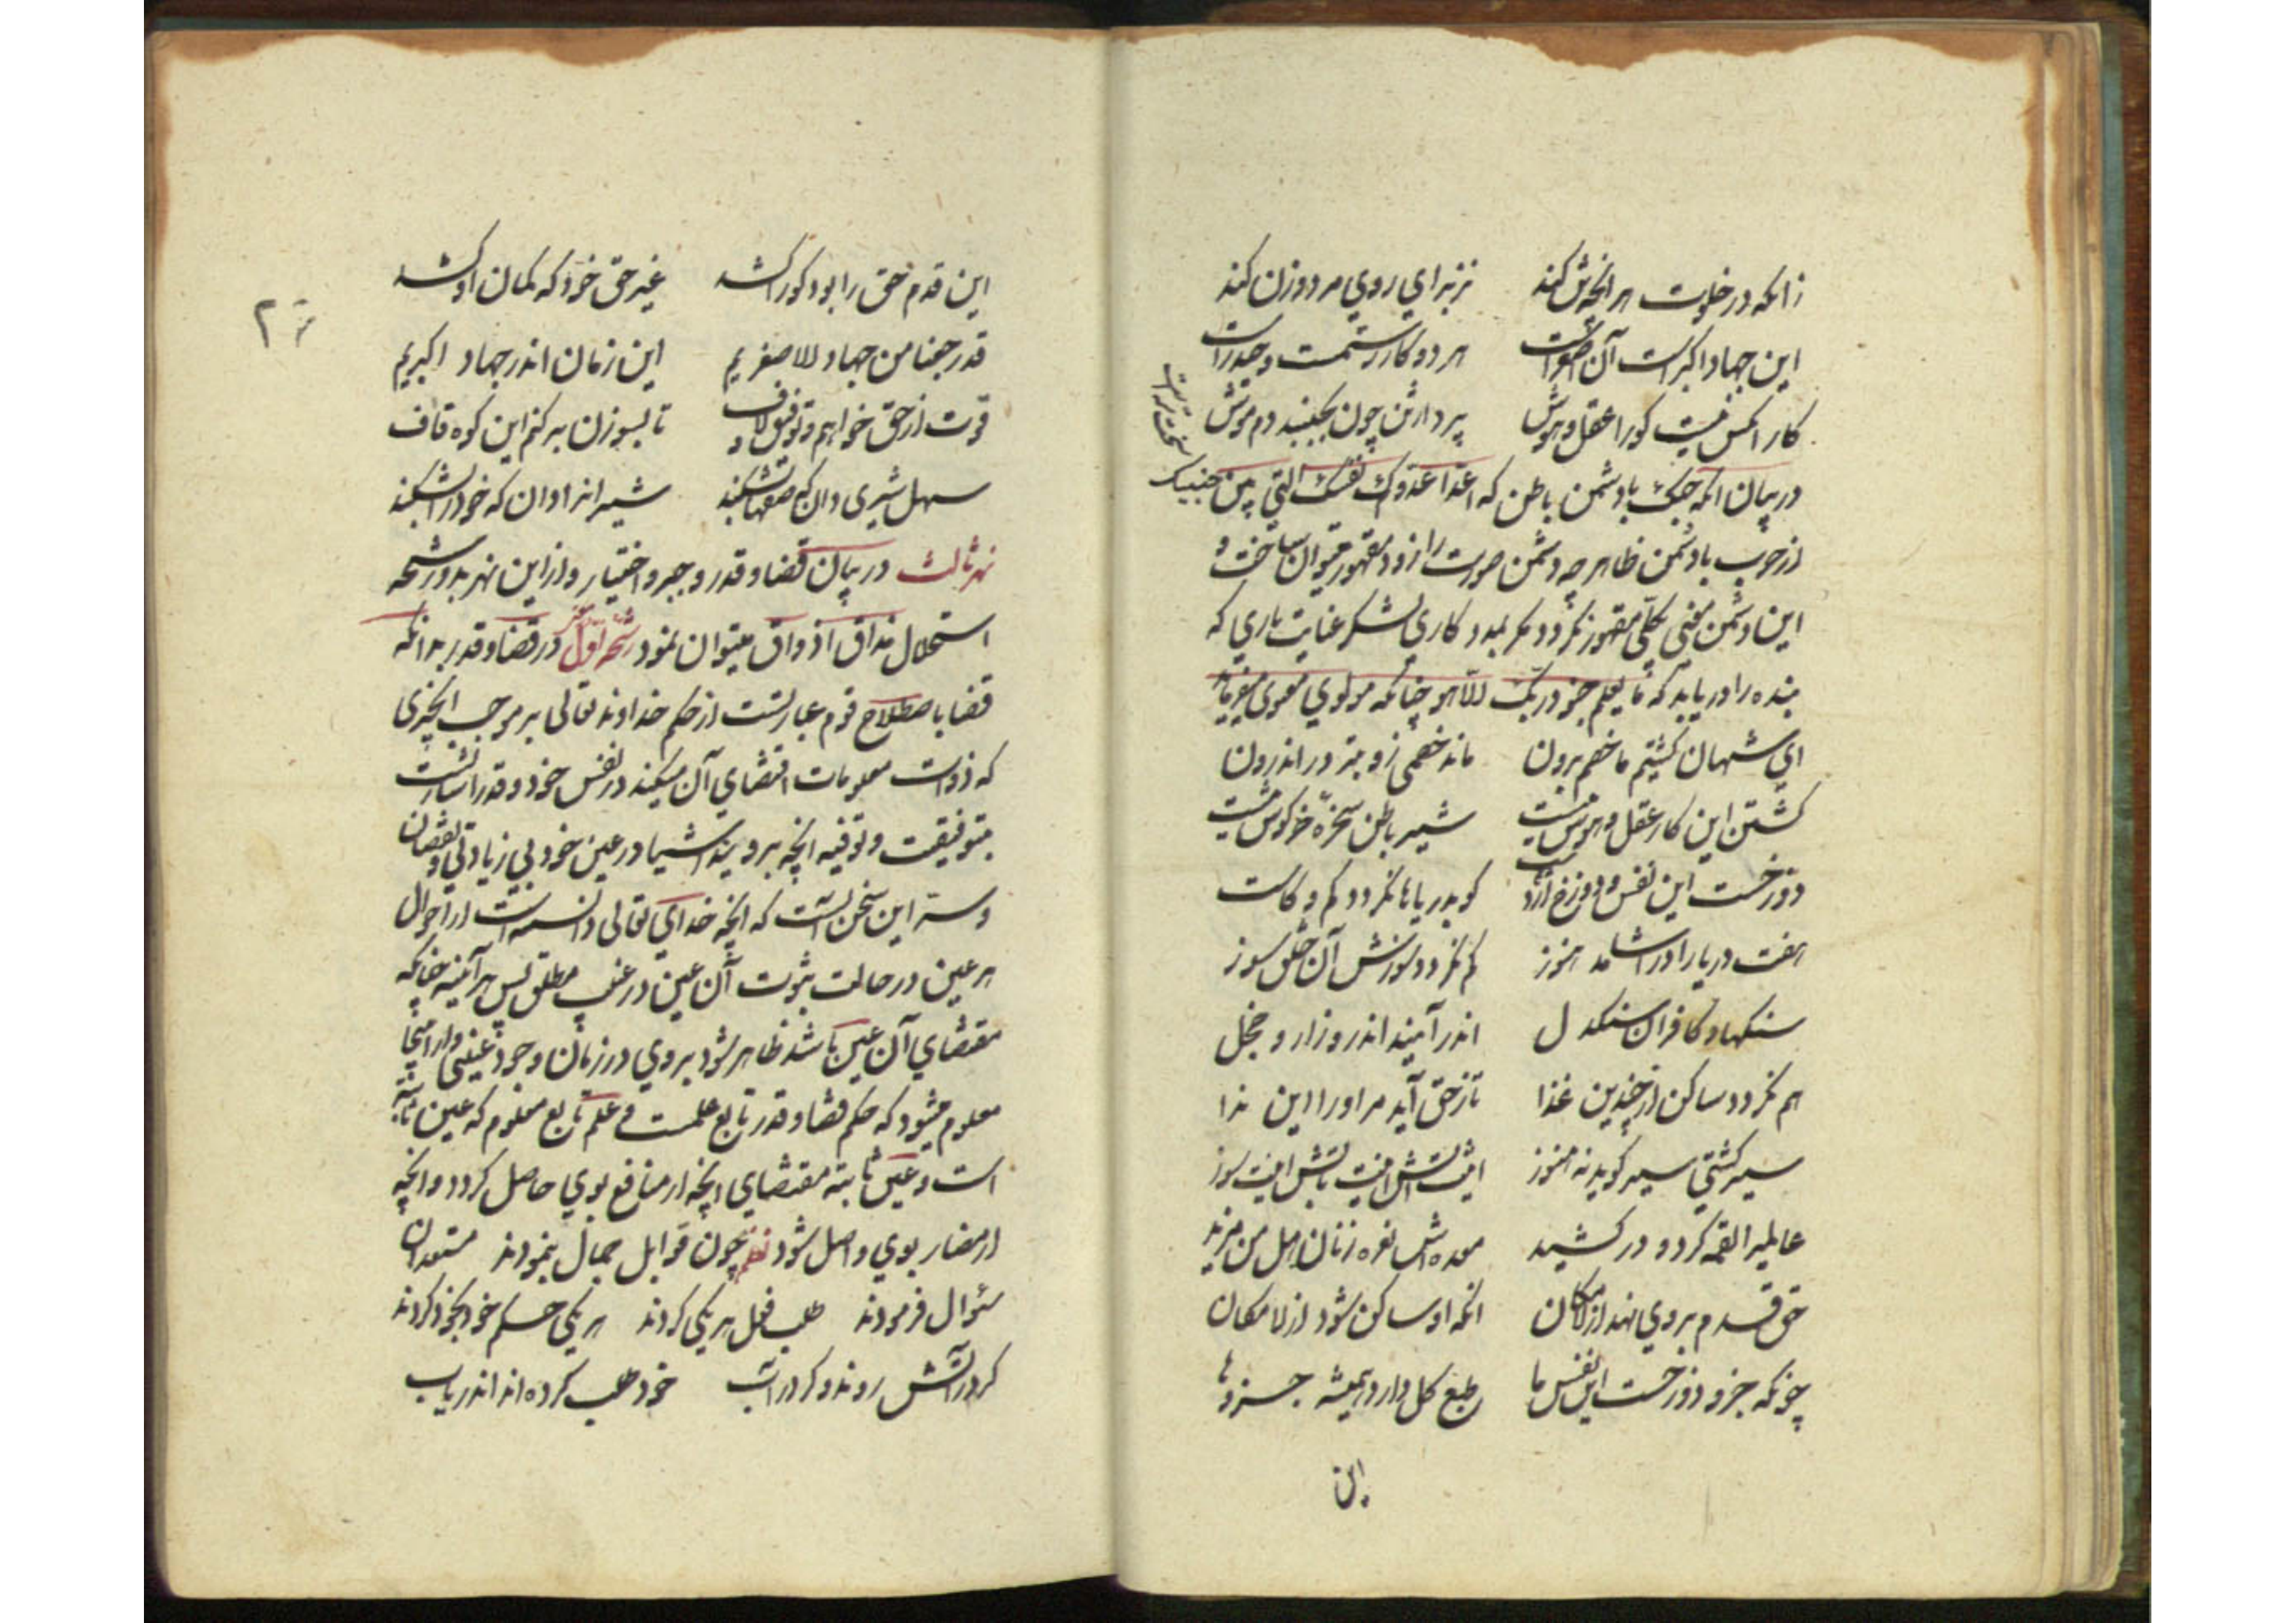 زانکه در خلوت هر انچش کند نز برای روی مرد و زن کند
این جهاد اکبر است آن اصغر است هر دو کار رستمست و حیدر است
کار انکس نیست کورا عقل و هوش پرد از تن چون بجنبد دم موش
در بیان انکه جنک با دشمن باطن که اعدا عدوک نفسک التی بین جنبیک سخت تر است
از حرب با دشمن ظاهر چه دشمن صورت را زود مقهور میتوان ساخت و
این دشمن مخفی بکلی مقهور نکردد مکر بمدد کاری لشکر عنایت باری که
بنده را دریابد که ما یعلم جنود ربک الا هو چنانکه مولوی معنوی میفرماید
ای شهان کشتیم ما خصم برون ماند خصمی زو بتر در اندرون
کشتن این کار عقل و هوش نیست شیر باطن سخره خرکوش نیست
دوزخست این نفس و دوزخ اژدهاست کو بدریاها نکردد کم و کاست
هفت دریا را در اشامد هنوز کم نکردد سوزش آن خلق سوز
سنکها و کافران سنکدل اندر آیند اندرو زار و خجل
هم نکردد ساکن از چندین غذا تا ز حق آید مر اورا این ندا
سیر کشتی سیر کوید نه هنوز اینت آتش اینت تابش اینت سوز
عالمیرا لقمه کرد و در کشید معده اش نعره زنان هل من مزید
حق قدم بروی نهد از لامکان انکه او ساکن شود از لامکان
چونکه جزو دوزخست این نفس ما طبع کل دارد همیشه جزوها
این
این قدم حق را بود کورا کشد غیر حق خود که کمان او کشد
قد رجعنا من جهاد الاصغریم این زمان اندر جهاد اکبریم
قوت از حق خواهم و توفیق و لاف تا بسوزن بر کنم این کوه قاف
سهل شیری دان که صفها بشکند شیر انرا دان که خود را بشکند
نهر ثالث در بیان قضا و قدر و جبر و اختیار و از این نهر بدو رشحه
استحلال مذاق اذواق میتوان نمود رشحه اول در قضا و قدر بدانکه
قضا باصطلاح قوم عبارتست از حکم خداوند تعالی بر موجب انچیزی
که ذوات معلومات اقتضای آن میکند در نفس خود و قدر اشارتست
بتوقیت و توفیه انچه بروینداشیا در عین خود بی زیادتی و نقصان
و سر این سخن آنست که انچه خدای تعالی دانسته است از احوال
هر عین در حالت ثبوت آن عین در غیب مطلق پس هر آینه چنانکه
مقتضای آن عین باشد ظاهر شود بروی در زمان وجود عینی و از اینجا
معلوم میشود که حکم قضا و قدر تابع علمست و علم تابع معلوم که عین ثابته
است و عین ثابته مقتضای انچه از منافع بوی حاصل کردد و انچه
از مضار بوی واصل شود نظم چون قوابل جمال بنمودند مستعدان
سئوال فرمودند طلب فعل هر یکی کردند هر یکی حسم خود بخود کردند
کر در آتش روند و کر در آب خود طلب کرده اند اندریاب